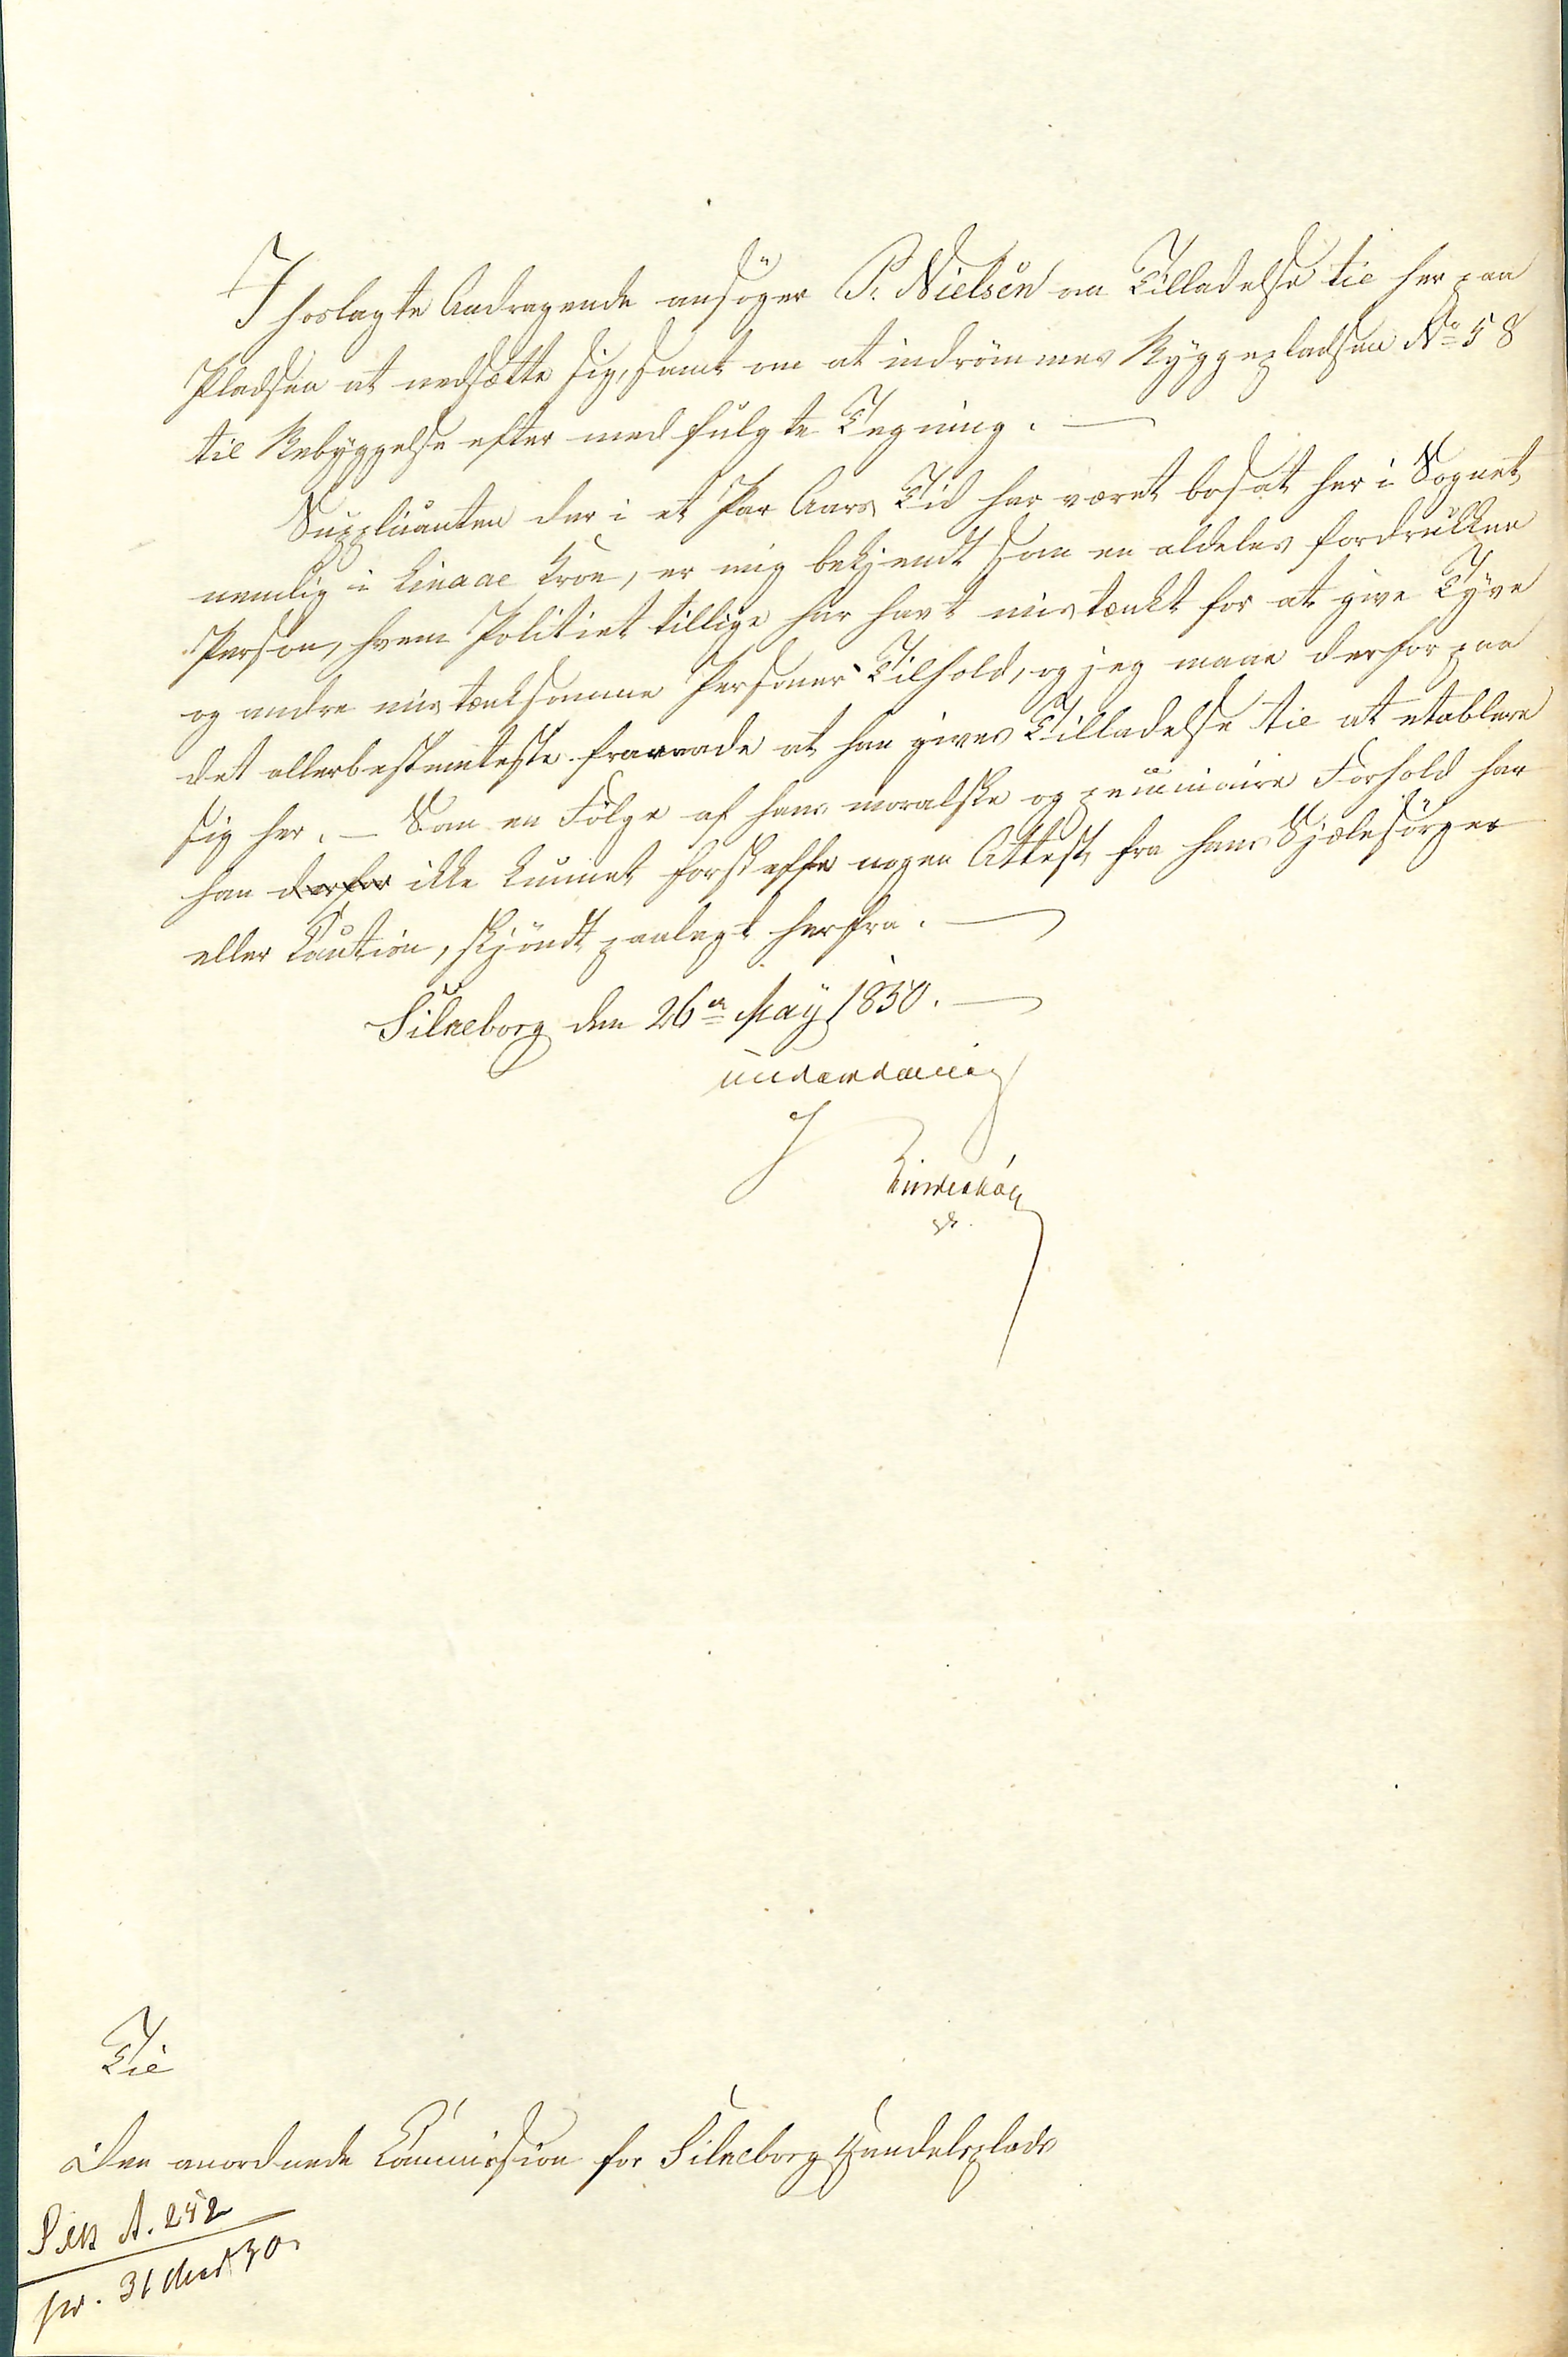 I hoslagte Andragende ansöger P. Nielsen om Tilladelse til her paa
Pladsen at nedsætte sig, samt om at indrömmes Byggepladsen No 58
til Bebyggelse efter medfulgte Tegning. —
Supplicanten der i et Par Aars Tid har været bosat her i Sognet
nemlig i Linaae Kroe, er mig bekjendt som en aldeles fordrukken
Person, hvem Politiet tillige har havt mistænkt for at give Tyve
og andre mistænksomme Personer Tilhold, og jeg maae derfor paa
det allerbestemteste fraraade at han gives Tilladelse til at etablere
sig her. — Som en Fölge af hans moralske og pecuniaire Forhold har
han derfor ikke kunnet forskaffe nogen Attest fra hans Sjælesörger
eller Caution, skjöndt paalagt herfra. —
Silkeborg den 26de May 1850. —
underdanig
Til
Den anordnede Commission for Silkeborg Handelsplads
A. 252
pr. 31 Mai 50.